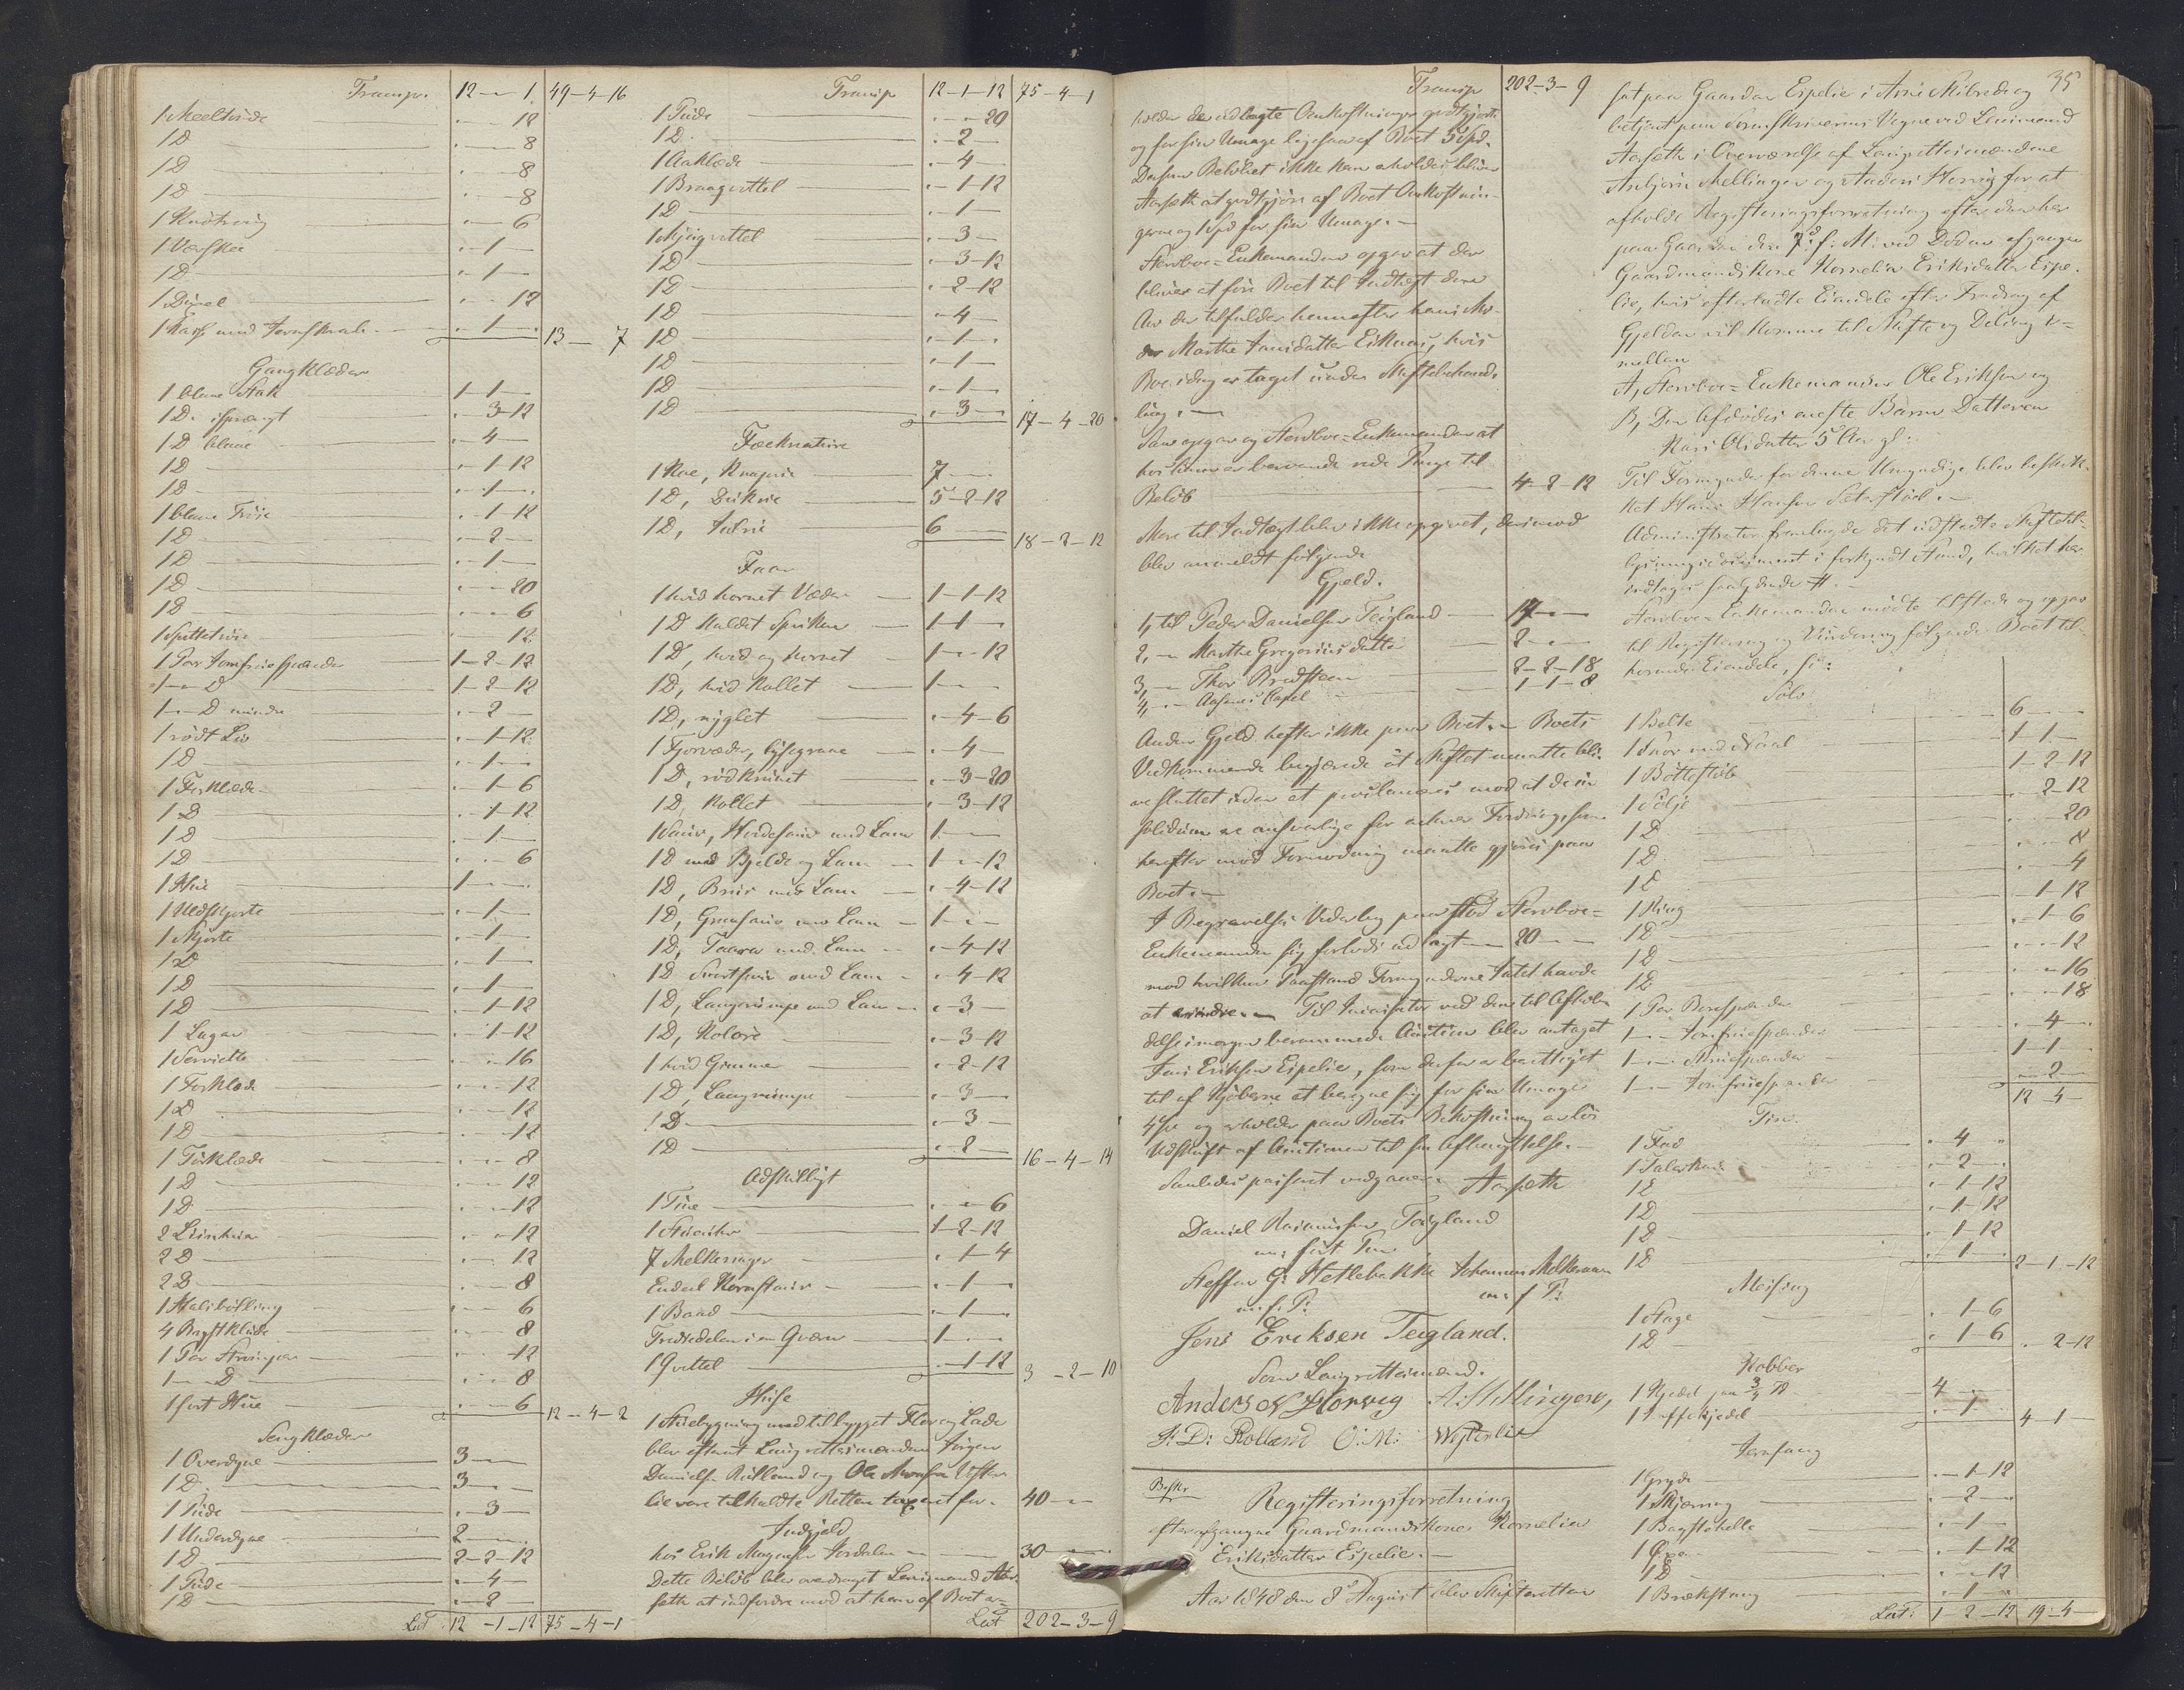 Transp. 12 - " - 1. 49-4-16
1 Meelkiste " - " - 12
1 D " - " - 8
1 D " - " - 8
1 D " - " - 8
1 " - " - 6
1 " - 1 -
1 D " - 1 -
1 " - " - 12
1 med Jernskaal " - 1 - 13 - " - 7
Gangklæder
1 blaae Stak 1-1-
1 D. isprængt " - 3-12
1 D blaae " - 4 -
1 D " - 1-12
1 D " - 1 -
1 blaae Trøie " - 1-12
1 D " - 2 -
1 D " - 1 -
1 D " - " - 20
1 D " - " - 6
1 " - " - 12
1 Par Tomfruespænder 1-2-12
1 - " D 1-2-12
1 - " D mindre " - 2 -
1 rødt Liv " - 1-12
1 D " - 1 -
1 Forklæde " - 1-6
1 D " - 1-12
1 D " - 1 -
1 D " - " - 6
1 Hue 1 - " -
1 Uldskjorte " - 1 -
1 Skjorte " - 1 -
1 D " - 1 -
1 D " - 1 -
1 D " - 1-12
1 Lagen " - 1-12
1 Serviette " - " - 16
1 Forklæde " - " - 12
1 D " - " - 12
1 D " - " - 12
1 Tørklæde " - " - 8
1 D " - " - 12
1 D " - " - 12
2 " - " - 12
2 D " - " - 12
2 D " - " - 8
1 " - " - 6
4 Brystklude " - " - 8
1 Par Strømper " - " - 12
1 - " D " - " - 8
1 sort Hue " - " - 6 12 - 4 - 2
Sengklæder
1 Overdyne 3 - " -
1 D. 3 - " -
1 Pude " - 3 -
1 Underdyne 2 - " -
1 D. 2-2-12
1 Pude " - 4 -
1 D " - 2 -
Lat. 12 - 1 - 12 75-4-1
Transp 12-1-12 75-4-1
1 Pude " - " - 20
1 D. " - 2 -
1 Aaklæde " - 4 -
1 Braagvittel " - 1-12
1 D " - 1 -
1 " - 3 -
1 D " - 3-12
1 D " - 2-12
1 D " - 4 -
1 D " - 1 -
1 D " - 1 -
1 D " - 1 -
1 D " - 3 - 17-4-20
Fækreature
1 Koe, 7 - " -
1 D, 5-2-12
1 D, 6 - 18-2-12
Faar
1 hvid hornet Væder 1-1-12
1 D kaldet 1-1-
1 D, hvid og hornet 1 - " - 12
1 D, hvid kollet 1 - " -
1 D, nyglet " - 4-6
1 Fjorvæder, lysegraae " - 4 -
1 D, rødkrunet " - 3-20
1 D, kollet " - 3-12
1 Souv, med Lam 1 - " -
1 D med Bjelde og Lam 1 - " - 12
1 D, med Lam " - 4-12
1 D, med Lam 1 - " -
1 D, med Lam " - 4-12
1 D med Lam " - 4-12
1 D, Langrumpe med Lam " - 3 -
1 D, " - 3-12
1 hvid Gimmer " - 2-12
1 D, Langrumpe " - 3 -
1 D " - 3 -
1 D " - 2 - 16-4-14
Adskilligt
1 Tine " - " - 6
1 1-2-12
7 Melkeringer " - 1-4
Endeel " - 1 -
1 Baad " - 1 -
Trediedelen i en Qværn 1 - " -
1 Qvittel " - 1-12 3-2-10
Huse
1 Stuebygning med tilbygget Flor og Lade
blev efterat Laugrettesmændene Jørgen
Danielsen Rolland og Ole Monsen
lie vare tilkaldte Retten taxeret for. 40 - " -
Indgjeld
hos Erik Magnesen 30 - " -
Dette Beløb blev overdraget Lensmand Aar-
seth at indfordre mod at han af Boet er-
Lat 202-3-9
Transp 202-3-9
holder de udlagte Omkostninger godtgjorte
og for sin Umage ligesaa af Boet 5 Spd.
Dersom Beløbet ikke kan erholdes bliver
Aarseth at godtgjøre af Boet Omkostnin-
gerne og 1 Spd for sin Umage. -
Stervboe-Enkemanden opgav at der
bliver at føre Boet til Indtægt den
Arv der tilfalder ham efter hans Mo-
der Marthe Jansdatter Eikenes, hvis
Boe idag er taget under Skiftebehand-
ling. -
Saa opgav og Stervboe-Enkemanden at
hos ham er beroende rede Penge til
Beløb 4-2-12
Mere til Indtægt blev ikke opgivet, derimod
blev anmeldt følgende
Gjeld.
1, til Peder Danielsen Teigland 17 - " -
2, - " Marthe Gregoriusdatter 2 - " -
3, - " Thor Bradsteen 2-2-18
4, - " Aasene Capel 1-1-8
Anden Gjeld hefter ikke paa Boet. - Boets
Vedkommende begjærede at Skiftet maatte bli-
ve sluttet uden at proclameres mod at de in
solidum ere ansvarlige for enhver Fordring, som
herefter mod Formodning maatte gjøres paa
Boet. -
I Begravelses Vederlag paastod Stervboe-
Enkemanden sig forlods udlagt 20 - " -
mod hvilken Paastand Formynderne Intet havde
at erindre. - Til Incassator ved den til Afhol-
delse imorgen berammede Auction blev antaget
Jens Eriksen Espelie, som derfor er berettiget
til af Kjøberne at beregne sig for sin Umage
4 pc og erholder paa Boets Bekostning en løs
Udskrift af Auctionen til sin Efterrettelse. -
Saaledes passeret vedgaaes. Aarseth
Daniel Rasmussen Teigland
m: ført Pen
Steffen G: Hetlebakke Johannes
m. f. P: m: f P:
Jens Eriksen Teigland.
Som Laugrettesmænd.
Anders N Horveg A: Mellingen,
J: D: Rolland O: M: Vesterlie
Registeringsforretning
efter afgangne Gaardmandskone Kornelia
Eriksdatter Espelie. -
Aar 1848 den 8de August blev Skifteretten
35
sat paa Gaarden Espelie i Arne Skibrede og
betjent paa Sorenskriverens Vegne ved Lensmand
Aarseth i Overværelse af Laugrettesmændene
Asbjørn Mellingen og Anders Horvig for at
afholde Registeringsforretning efter den her
paa Gaarden den 7de f: M: ved Døden afgangne
Gaardmandskone Kornelia Eriksdatter Espe-
lie, hvis efterladte Eiendele efter Fradrag af
Gjelden vil komme til Skifte og Deling i-
mellem
A, Stervboe-Enkemanden Ole Eriksen og
B, Den Afdødes eneste Barn Datteren
Kari Olsdatter 5 Aar gl:
Til Formynder for denne Umyndige blev beskik-
ket Hans Hansen . -
Administrator fremlagde det udstedte Skiftetil-
lysningsdocument i forkyndt Stand, hvilket her
indtages saalydende #. -
Stervboe-Enkemanden mødte tilstede og opgav
til Registering og Vurdering følgende Boet til-
hørende Eiendele, s:
Sølv
1 Belte 6 - " -
1 Snor med Naal 1-1-
1 1-2-12
1 Sølje " - 2-12
1 D " - " - 20
1 D " - " - 8
1 D " - " - 4
1 Ring " - 1-12
1 D " - 1-6
1 D " - " - 12
1 D " - " - 16
1 Par " - " - 18
1 - " Tomfruespænder " - 4 -
1 - " 1-1-
1 - " Tomfruespænder " - 2 -
12-4-
Tin.
1 Fad " - 4 "
1 Talerken " - 2 -
1 D " - 1-12
1 D " - 1-12
1 D " - 1-12
1 D " - 1 - 2-1-12
Messing
1 Stage " - 1-6
1 D " - 1-6 " - 2-12
Kobber
1 Kjedel paa 3/4 T 4 - " -
1 Kaffekjedel " - 1 - 4-1-
Jernfang
1 Gryde " - 1-12
1 Skjæring " - 2 -
1 Bagstehelle " - 1 -
1 Øxe " - 1-12
1 D " - " - 12
1 Brækstang " - 1 -
Lat: 1-2-12 19-4-